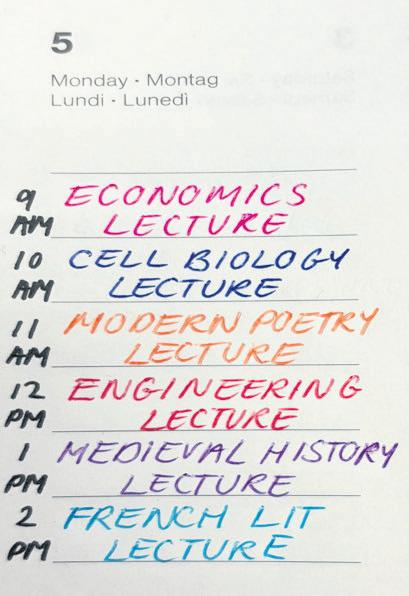 5
Monday · Montag
Lundi · Lunedì
9 ECONOMICS
AM LECTURE
10 CELL BIOLOGY
AM LECTURE
11 MODERN POETRY
AM LECTURE
12 ENGINEERING
PM LECTURE
1 MEDIEVAL HISTORY
PM LECTURE
2 FRENCH LIT
PM LECTURE